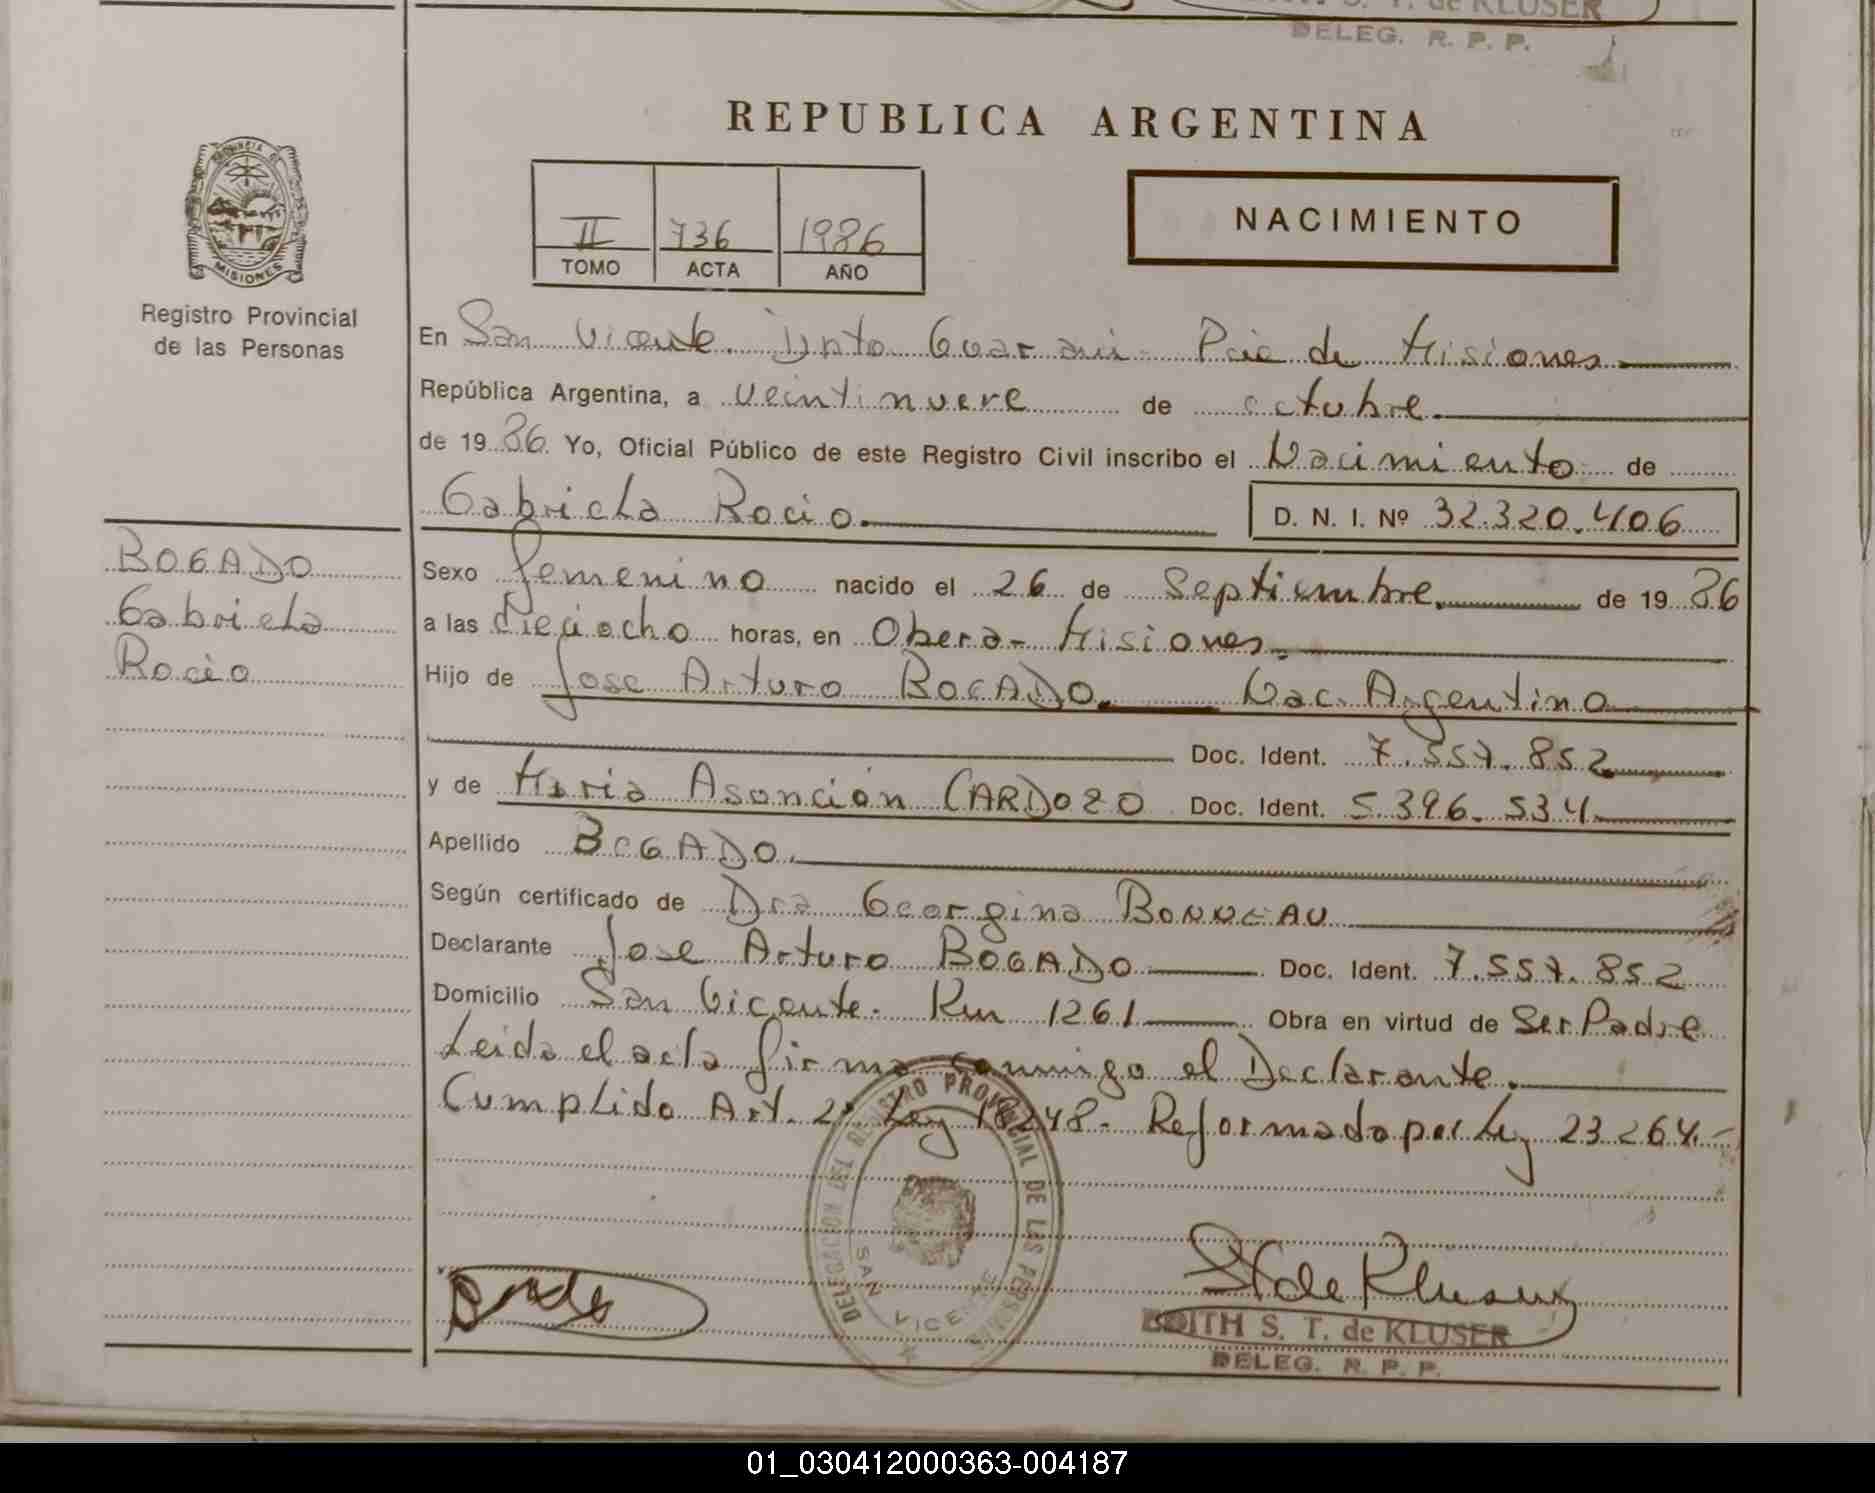 S. T. de KLUSER
DELEG. R. P. P.
REPUBLICA ARGENTINA
PROVINCIA DE
MISIONES
Registro Provincial
de las Personas
II 736 1986
TOMO ACTA AÑO
NACIMIENTO
En San Vicente. Dpto Guarani Pcia de Misiones
República Argentina, a veintinueve de octubre
de 1986 Yo, Oficial Público de este Registro Civil inscribo el Nacimiento de
Gabriela Rocio. D. N. I. Nº 32.320.406
BOGADO
Gabriela
Rocio
Sexo femenino nacido el 26 de Septiembre. de 1986
a las dieciocho horas, en Obera - Misiones.
Hijo de Jose Arturo BOGADO. Nac. Argentino
Doc. Ident. 7.557.852
y de Maria Asunción CARDOZO Doc. Ident. 5.396.534
Apellido BOGADO.
Según certificado de Dra Georgina BONNEAU
Declarante Jose Arturo BOGADO Doc. Ident. 7.557.852
Domicilio San Vicente. Km 1261 Obra en virtud de Ser Padre
Leida el acta firma conmigo el Declarante.
Cumplido Art. 2º Ley 18248. Reformado por Ley 23264.-
DELEGACION DEL REGISTRO PROVINCIAL DE LAS PERSONAS
SAN VICENTE
S T de Kluser
EDITH S. T. de KLUSER
DELEG. R. P. P.
01_030412000363-004187